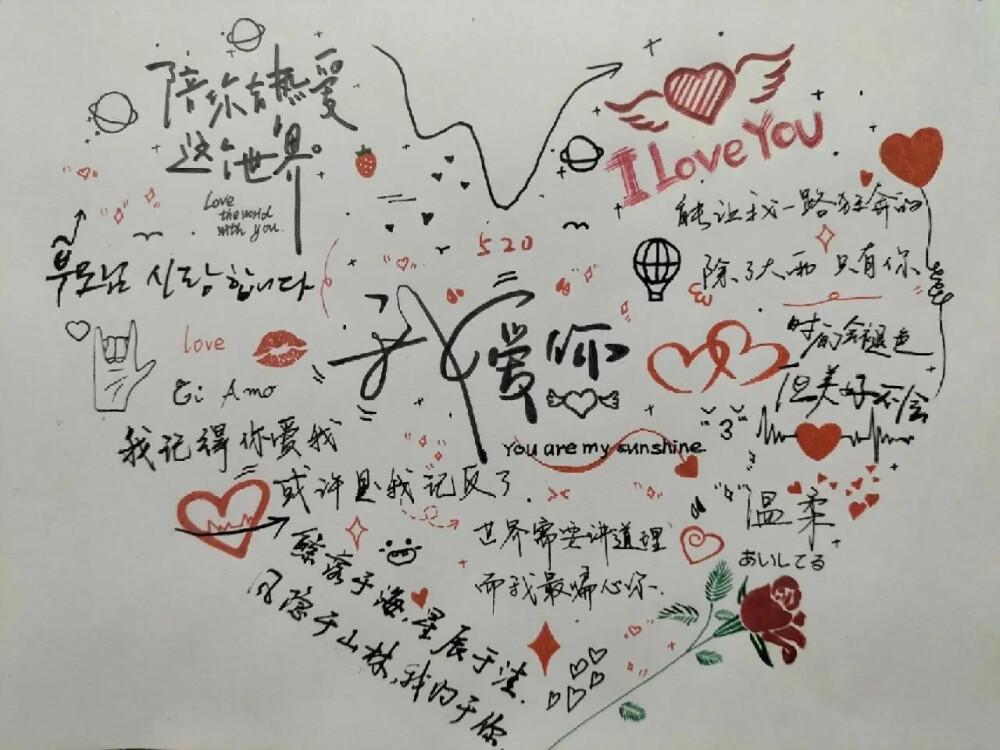 陪你去熱爱
这个世界。
Love
the world
with you.
I Love You
能让我一路狂奔的
除了大西 只有你
520
부모님 사랑합니다
love
Ei Amo
我爱你
时间会褪色
但美好不会
You are my sunshine
3
我记得你爱我
或许是我记反了
温柔
あいしてる
世界需要讲道理
而我最偏心你.
鲸落于海,星辰于洼.
风隐于山林,我的于你.